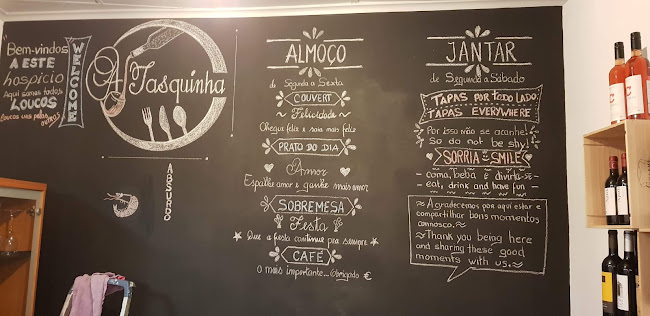 Bem-vindos
A ESTE
hospício
Aqui somos todos
LOUCOS
Loucos uns pelos
outros
WELCOME
A Tasquinha
ABSURDO
ALMOÇO
de Segunda a Sexta
COUVERT
~ Felicidade ~
Chegue feliz e saia mais feliz
PRATO DO DIA
Amor
Espalhe amor e ganhe mais amor
SOBREMESA
Festa
Que a festa continue pra sempre
CAFÉ
O mais importante... Obrigado €
JANTAR
de Segunda a Sábado
TAPAS POR TODO LADO
TAPAS EVERYWHERE
Por isso não se acanhe!
So do not be shy!
SORRIA - SMILE
coma, beba e divirta-se
- eat, drink and have fun -
Agradecemos por aqui estar e
compartilhar bons momentos
connosco.
Thank you being here
and sharing these good
moments with us.